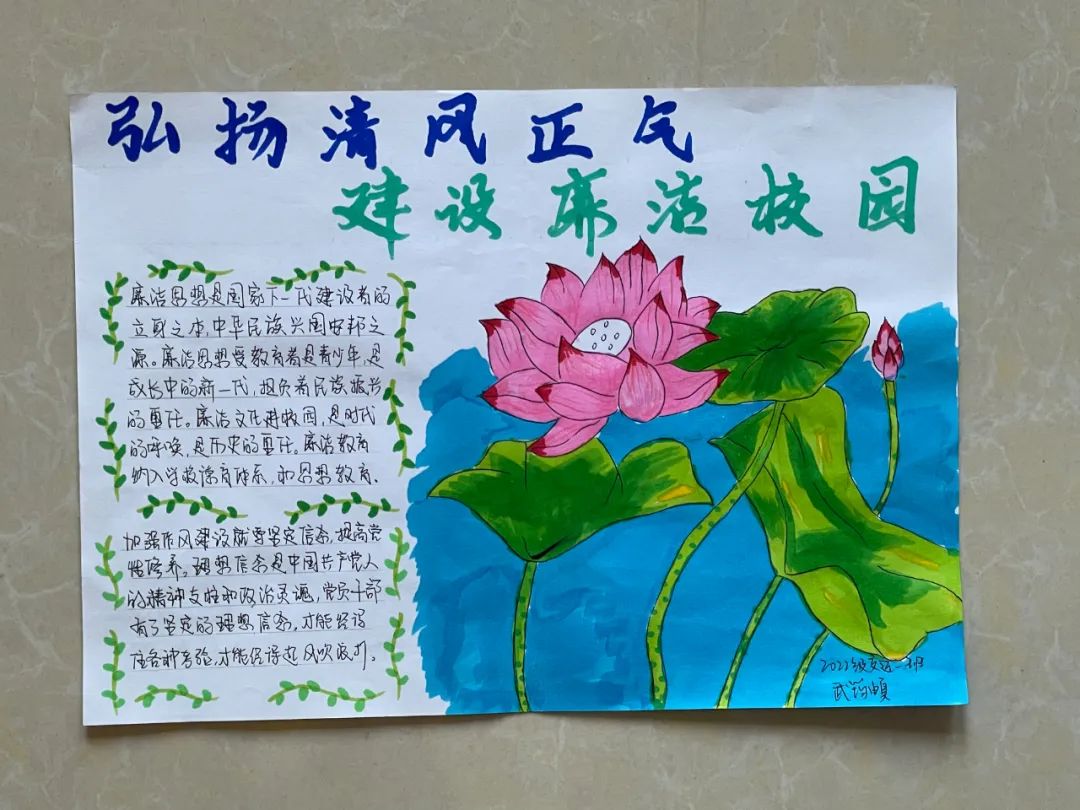 弘扬清风正气
建设廉洁校园
廉洁思想是国家下一代建设者的
立身之本,中华民族兴国安邦之
源。廉洁思想受教育者是青少年,是
成长中的新一代,担负着民族振兴
的重任。廉洁文化进校园,是时代
的呼唤,是历史的重任。廉洁教育
纳入学校德育体系,和思想教育.
加强作风建设就要坚定信念,提高党
性修养。理想信念是中国共产党人
的精神支柱和政治灵魂,党员干部
有了坚定的理想信念,才能经得
住各种考验,才能经得起风吹浪打。
2022级 一班
武